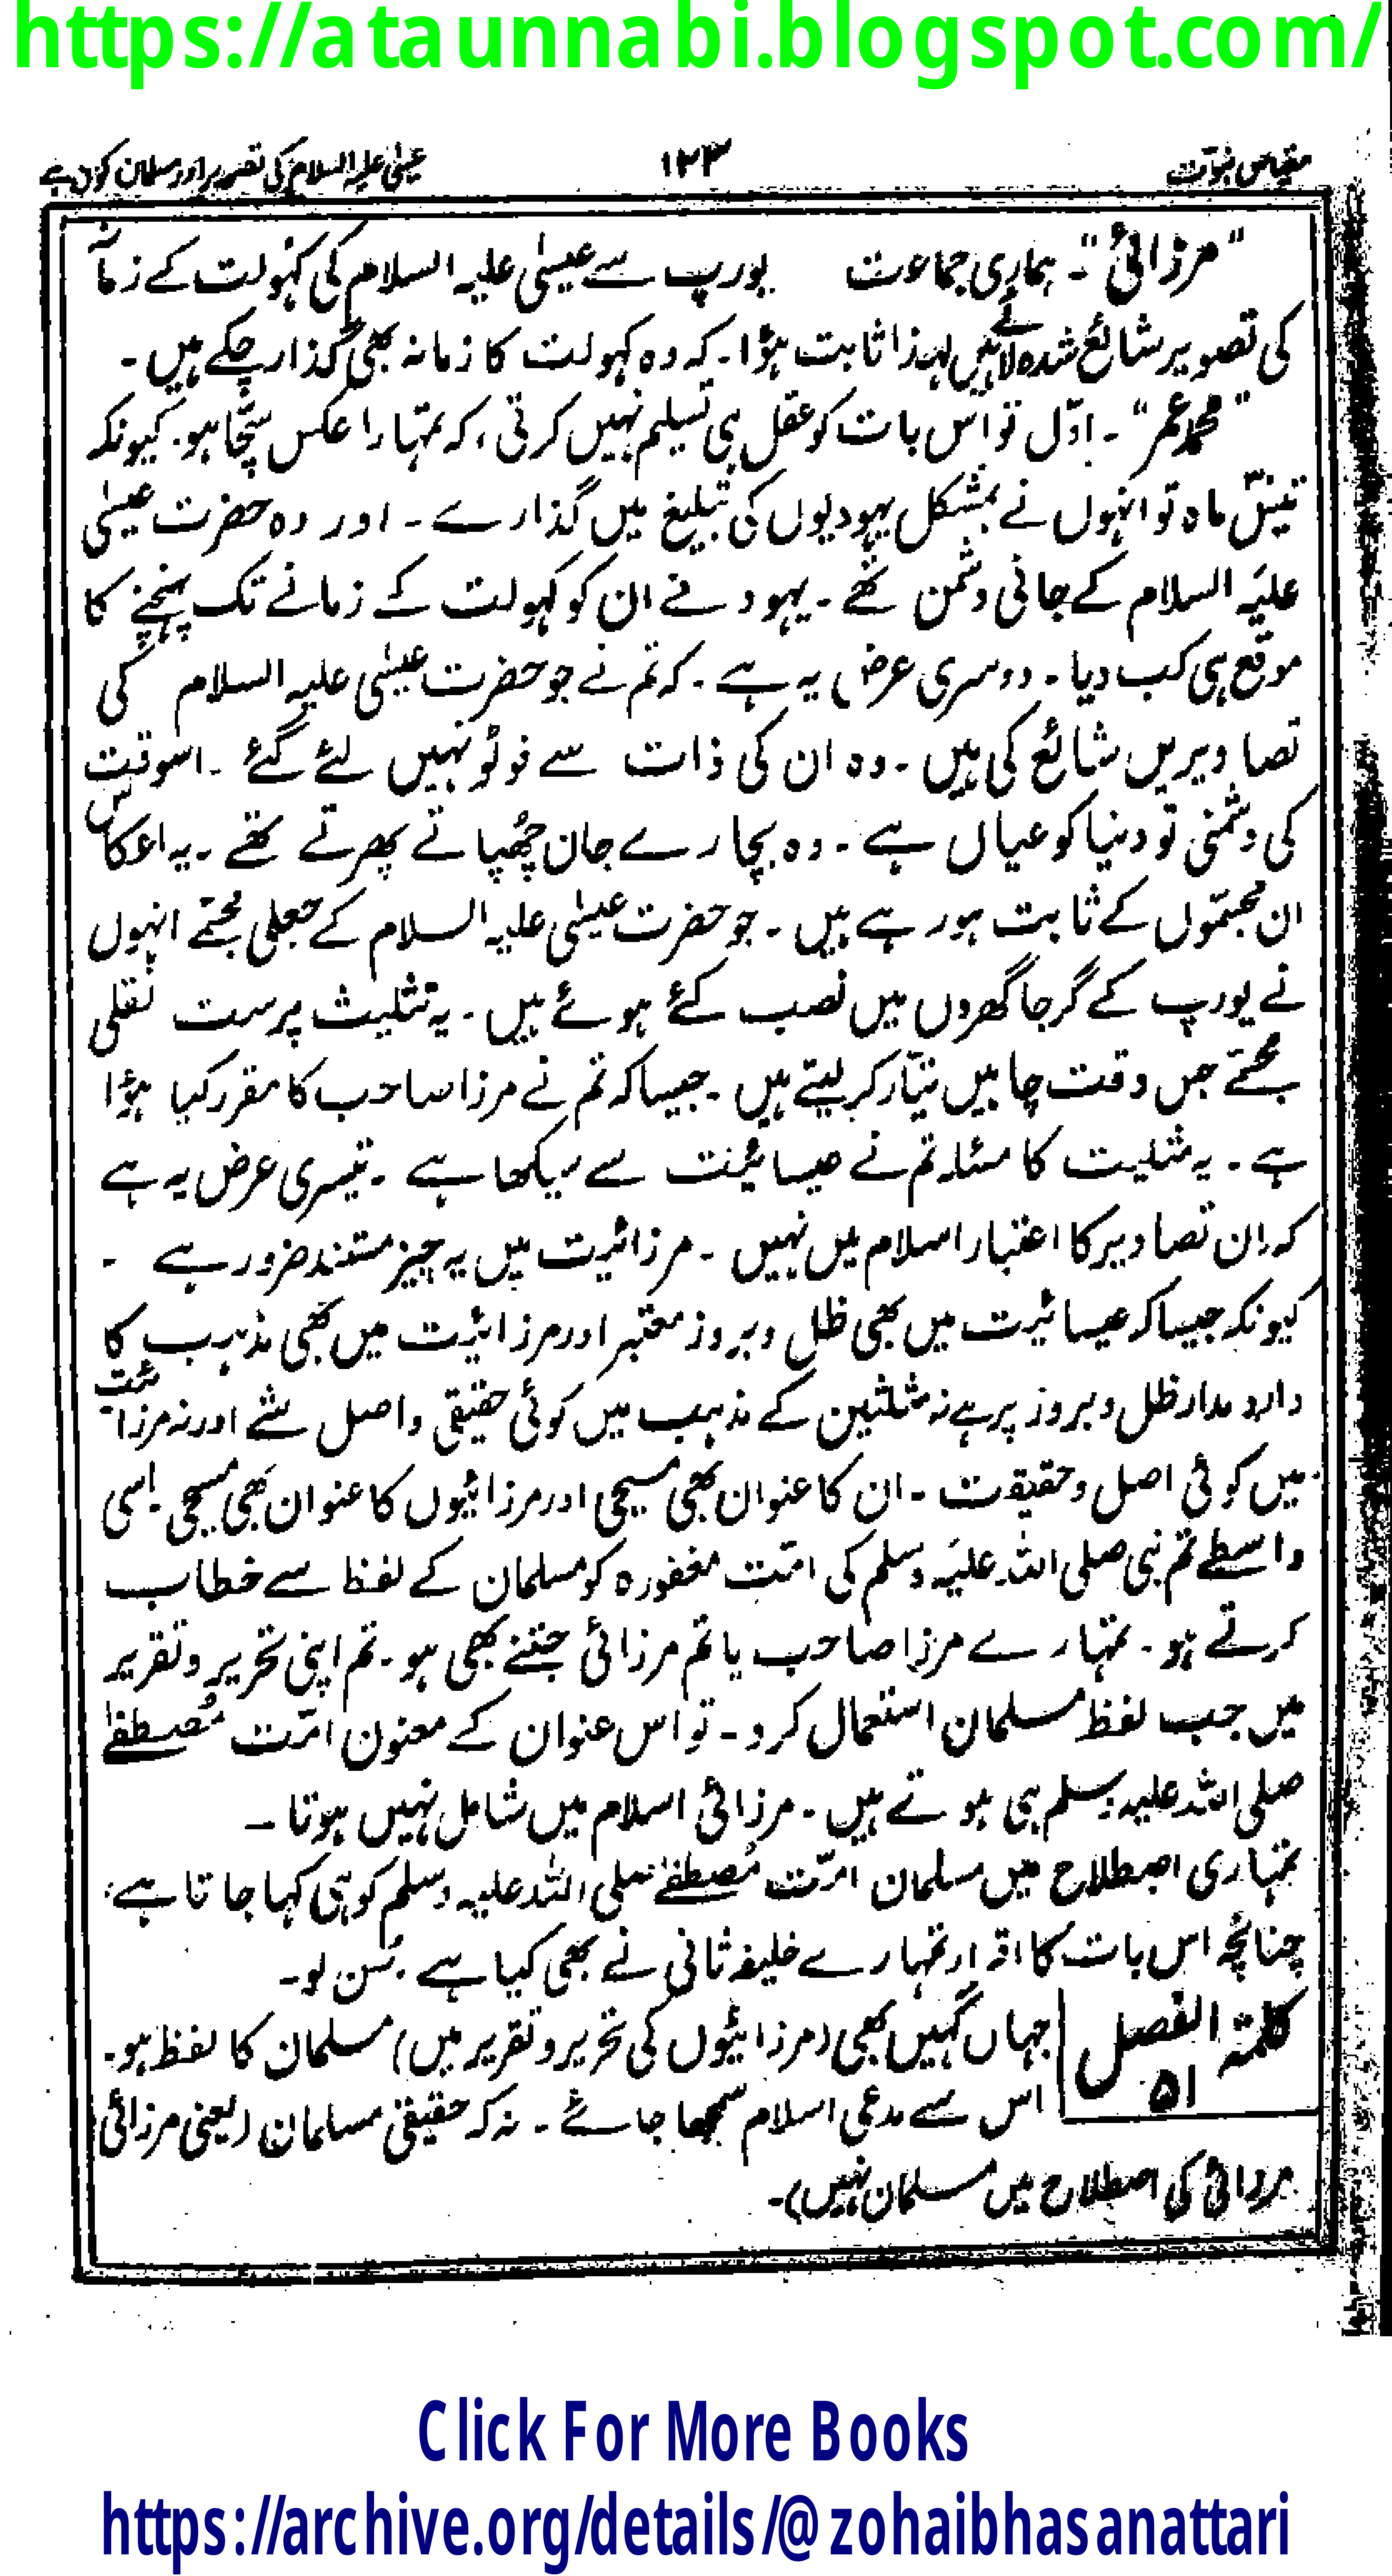 https://ataunnabi.blogspot.com/
مقیاس نبوّت
۱۲۳
عیسٰی علیہ السلام کی تصویر اور مسلمان کون ہے
"مرزائی"۔ ہماری جماعت یورپ سے عیسٰی علیہ السلام کی کہُولت کے زمانے
کی تصویر شائع شدہ لائے ہیں لہذا ثابت ہؤا۔ کہ وہ کہولت کا زمانہ بھی گذار چکے ہیں۔
"محمد عمر"۔ اوّل تو اس بات کو عقل ہی تسلیم نہیں کرتی، کہ تمہارا عکس سچّا ہو۔ کیونکہ
تین ماہ تو انہوں نے بمشکل یہودیوں کی تبلیغ میں گذارے۔ اور وہ حضرت عیسٰی
علیہ السلام کے جانی دشمن تھے۔ یہود نے ان کو کہولت کے زمانے تک پہنچنے کا
موقع ہی کب دیا۔ دوسری عرض یہ ہے۔ کہ تم نے جو حضرت عیسٰی علیہ السلام کی
تصاویریں شائع کی ہیں۔ وہ ان کی ذات سے فوٹو نہیں لئے گئے۔ اسوقت
کی دشمنی تو دنیا کو عیاں ہے۔ وہ بچارے جان چھُپاتے پھرتے تھے۔ یہ اعکاس
ان مجسّموں کے ثابت ہو رہے ہیں۔ جو حضرت عیسٰی علیہ السلام کے جعلی مجسّمے انہوں
نے یورپ کے گرجا گھروں میں نصب کئے ہوئے ہیں۔ یہ تثلیث پرست نقلی
مجسّمے جس وقت چاہیں تیّار کر لیتے ہیں۔ جیسا کہ تم نے مرزا صاحب کا مقرر کیا ہؤا
ہے۔ یہ مثلیت کا مسئلہ تم نے عیسائیت سے سیکھا ہے۔ تیسری عرض یہ ہے
کہ ان تصاویر کا اعتبار اسلام میں نہیں۔ مرزائیت میں یہ چیز مستند ضرور ہے۔
کیونکہ جیسا کہ عیسائیت میں بھی ظل و بروز معتبر اور مرزائیت میں بھی مذہب کا
دارو مدار ظل و بروز پر ہے نہ مثلثین کے مذہب میں کوئی حقیقی و اصل شے اور نہ مرزائیت
میں کوئی اصل و حقیقت۔ ان کا عنوان بھی مسیحی اور مرزائیوں کا عنوان بھی مسیحی۔ اسی
واسطے تم نبی صلی اللہ علیہ وسلم کی امّت مغفورہ کو مسلمان کے لفظ سے خطاب
کرتے ہو۔ تمہارے مرزا صاحب یا تم مرزائی جتنے بھی ہو۔ تم اپنی تحریر و تقریر
میں جب لفظ مسلمان استعمال کرو۔ تو اس عنوان کے معنون امّت مُصطفےٰ
صلی اللہ علیہ وسلم ہی ہوتے ہیں۔ مرزائی اسلام میں شامل نہیں ہوتا۔
تمہاری اصطلاح میں مسلمان امّت مُصطفےٰ صلی اللہ علیہ وسلم کو ہی کہا جاتا ہے،
چنانچہ اس بات کا اقرار تمہارے خلیفہ ثانی نے بھی کیا ہے۔ سُن لو۔
کلمۃ الفصل ۵۱
جہاں کہیں بھی (مرزائیوں کی تحریر و تقریر میں) مسلمان کا لفظ ہو۔
اس سے مدعی اسلام سمجھا جائے۔ نہ کہ حقیقی مسلمان (یعنی مرزائی
مرزائی کی اصطلاح میں مسلمان نہیں)۔
Click For More Books
https://archive.org/details/@zohaibhasanattari